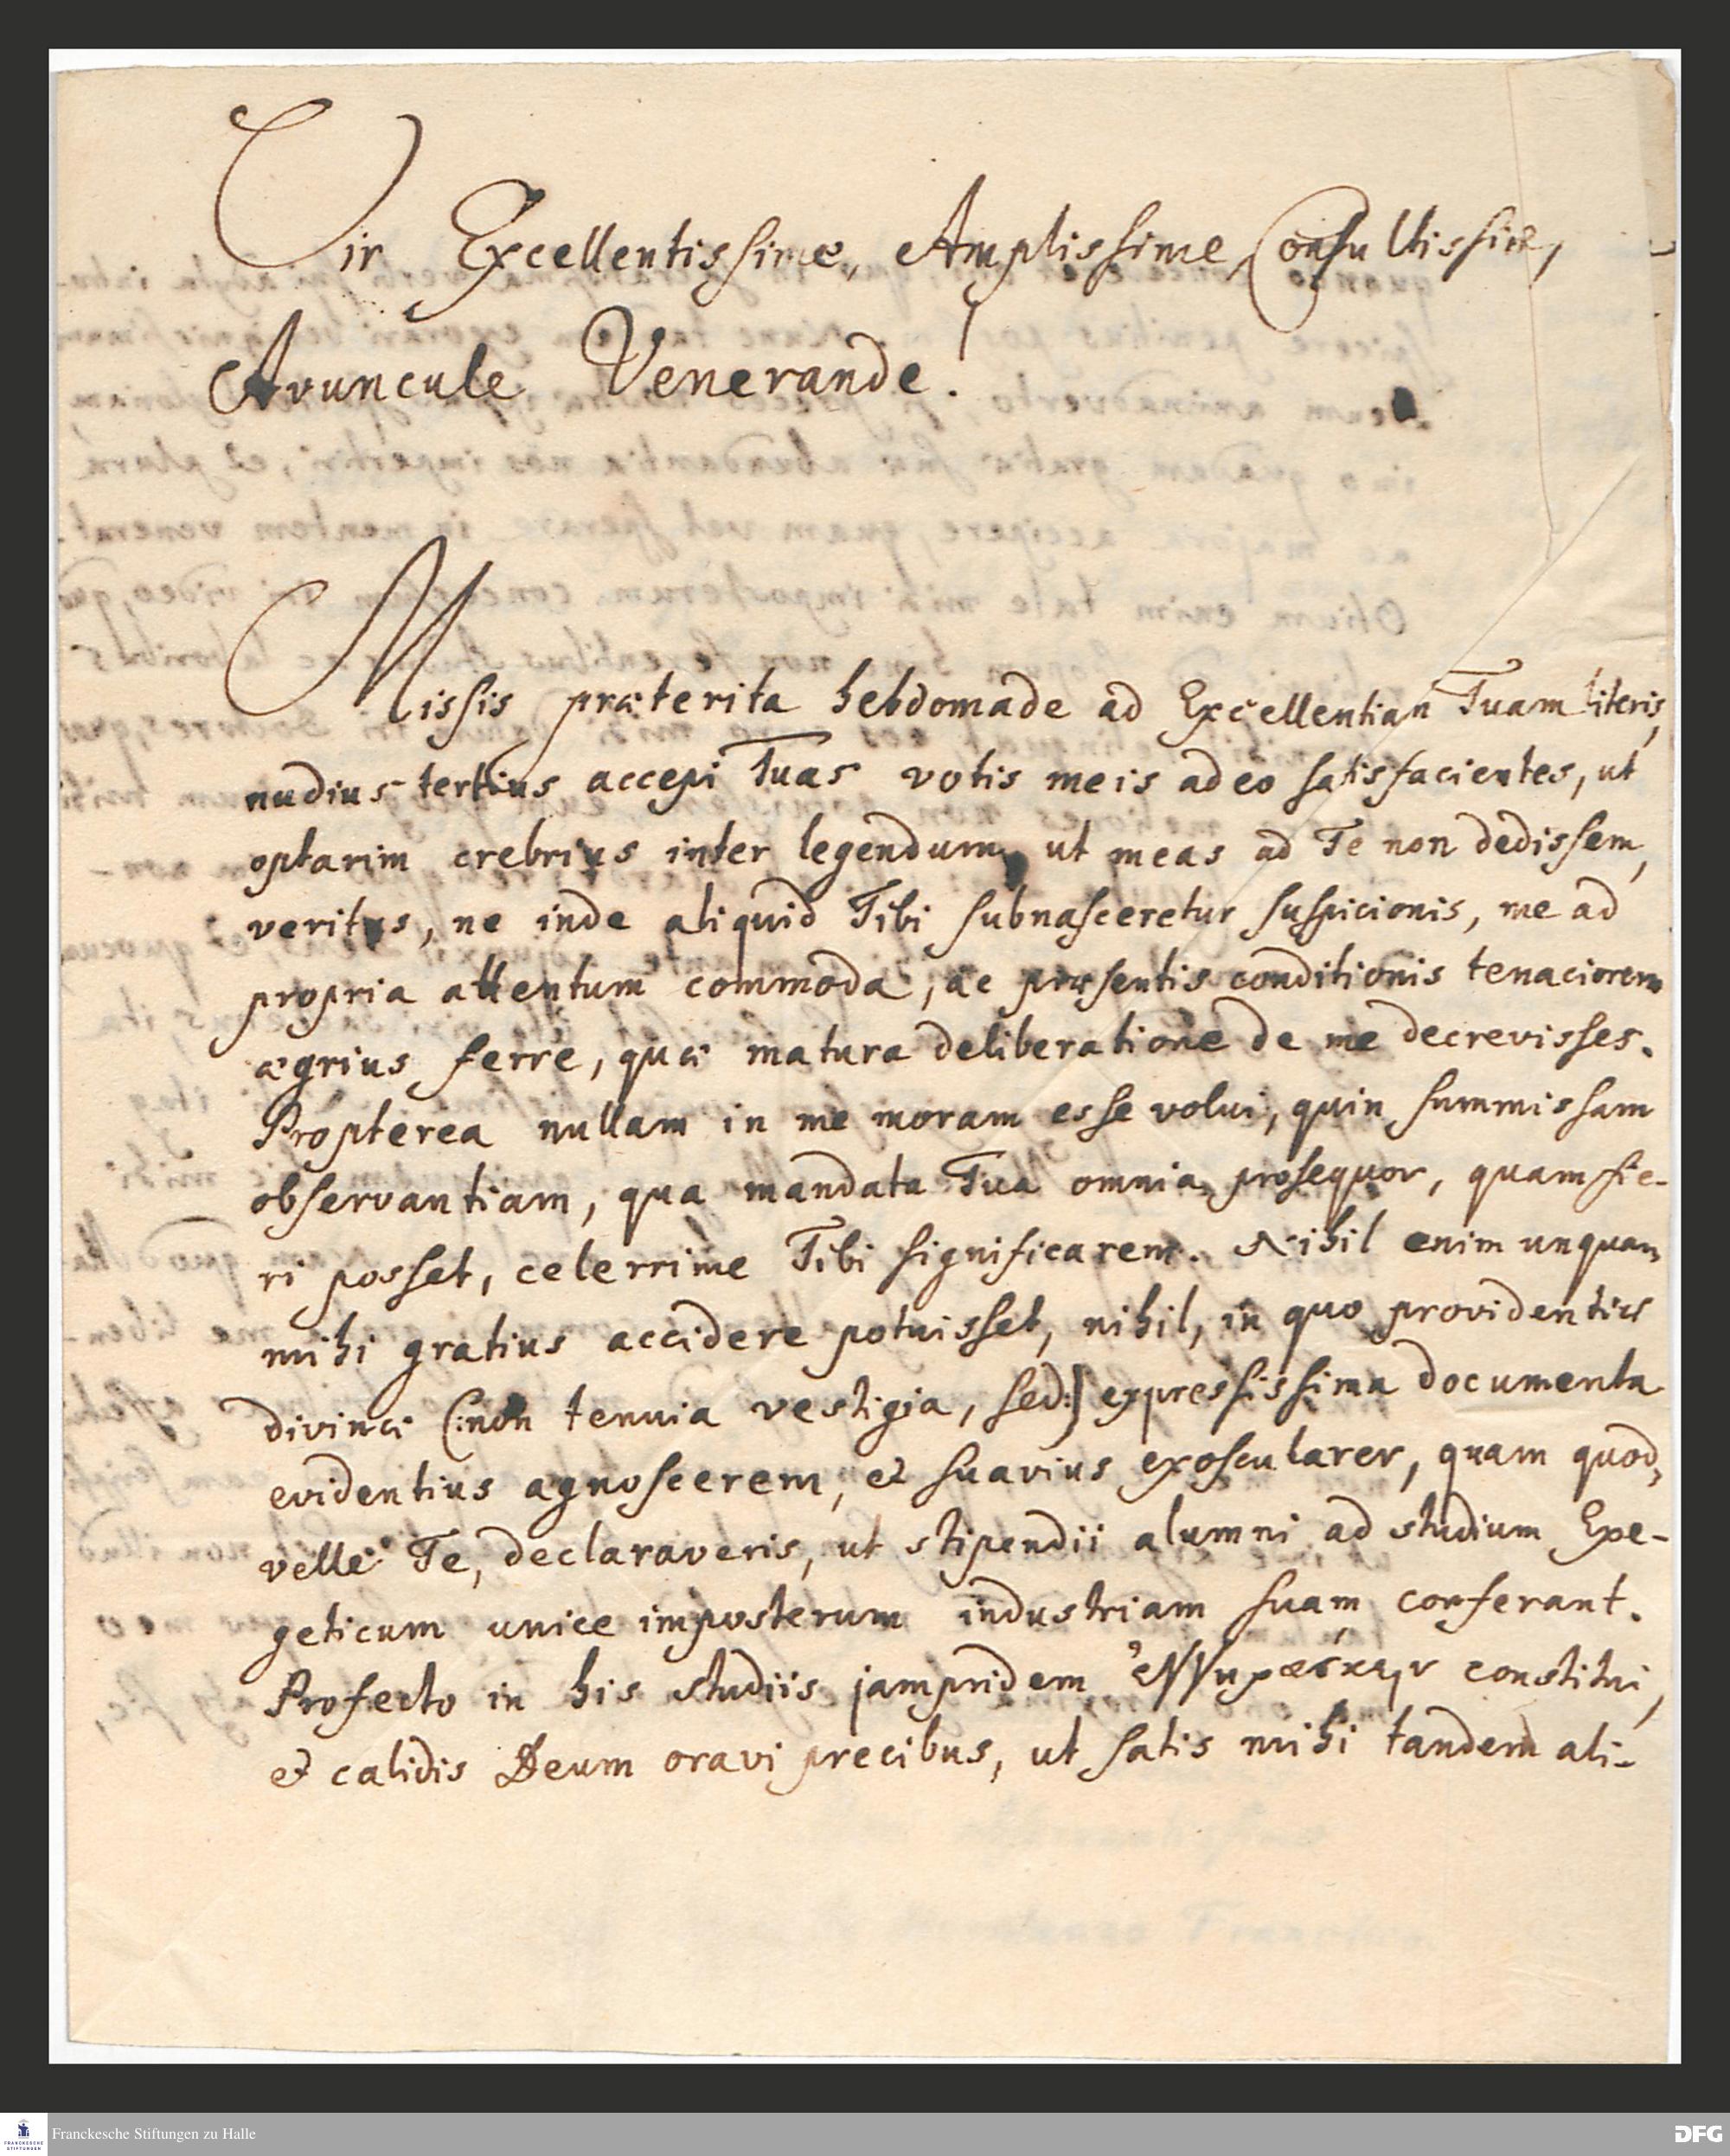 Vir Excellentissime, Amplissime, Consultissime,
Avuncule Venerande!
Missis præterita hebdomade ad Excellentiam Tuam literis,
nudius tertius accepi Tuas votis meis adeo satisfacientes, ut
optarim crebrius inter legendum, ut meas ad Te non dedissem,
veritus, ne inde aliquid Tibi subnasceretur suspicionis, me ad
propria attentum commoda, ac præsentis conditionis tenaciorem
ægrius ferre, quæ matura deliberatione de me decrevisses.
Propterea nullam in me moram esse volui, quin summissam
observantiam, qua mandata Tua omnia prosequor, quam fie-
ri posset, celerrime Tibi significarem. Nihil enim unquam
mihi gratius accidere potuisset, nihil, in quo providentiæ
divinæ (:non tenuia vestigia, sed:) expressissima documenta
evidentius agnoscerem, et suavius exoscularer, quam quod,
velle Te, declaraveris, ut stipendii alumni ad studium Exe-
geticum unice imposterum industriam suam conferant.
Profecto in his studiis jampridem constitui,
et calidis Deum oravi precibus, ut satis mihi tandem ali-
Franckesche Stiftungen zu Halle
FRANCKESCHE
STIFTUNGEN
DFG